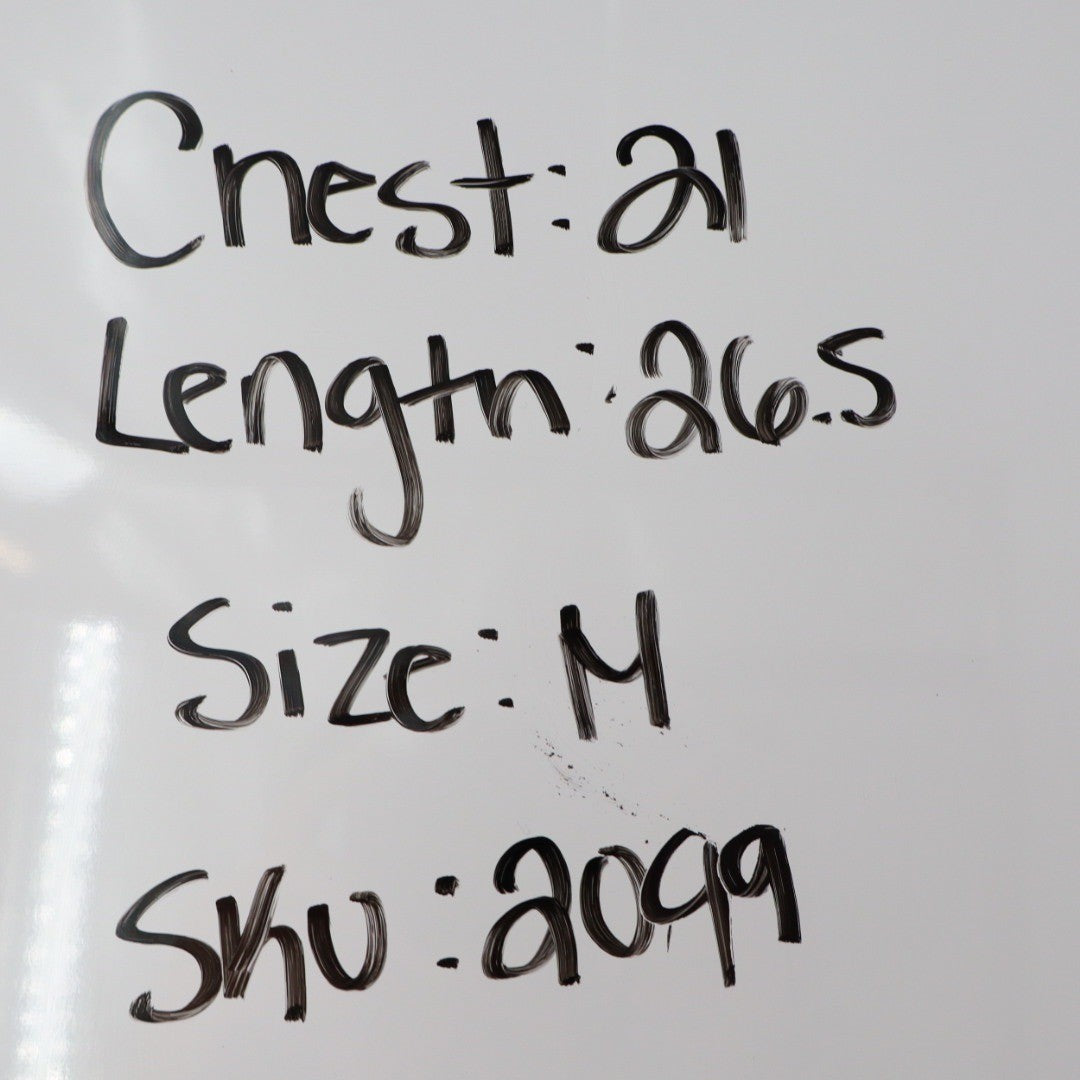 Chest: 21
Length: 26.5
Size: M
Sku: 2099